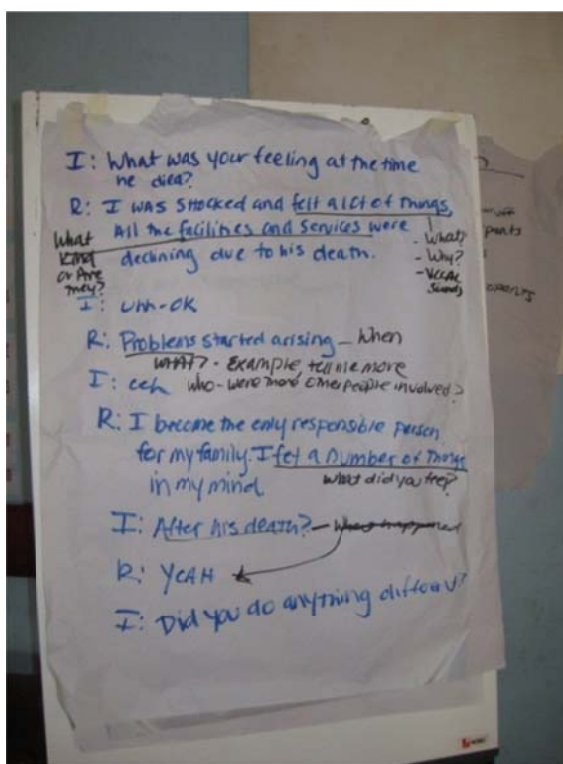 I: What was your feeling at the time
he died?
R: I was shocked and felt a lot of things,
All the facilities and services were
declining due to his death.
What
kind
or Are
they?
- What?
- Why?
- Vocal
Sounds
I: Uhh-OK
R: Problems started arising - When
WHAT? - Example, tell me more
I: eeh Who - were more other people involved?
R: I become the only responsible person
for my family. I fet a number of things
in my mind
What did you feel?
I: After his death? - What happened
R: YEAH
I: Did you do anything different?